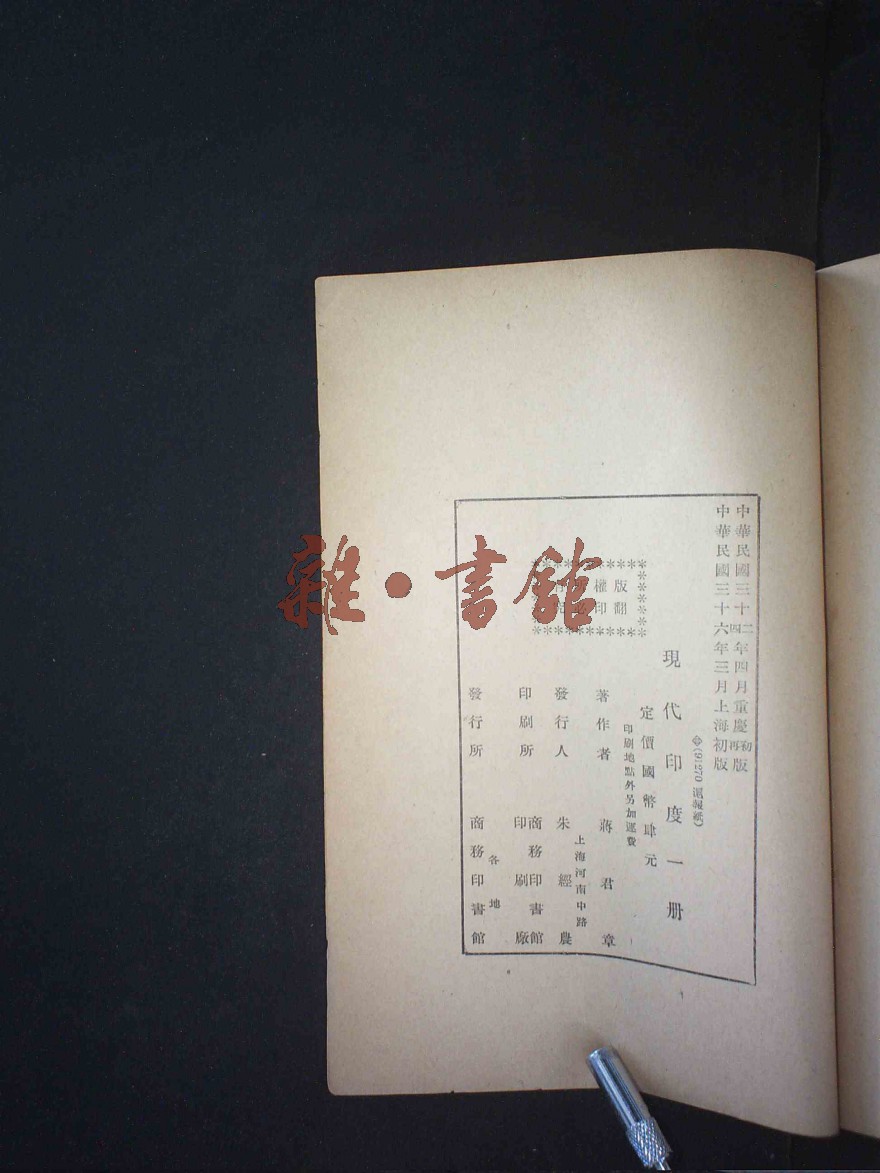 中華民國三十二四年四月重慶初再版
中華民國三十六年三月上海初版
(91270 滬報紙)
現代印度一册
定價國幣肆元
印刷地點外另加運費
版權所有
翻印必究
著作者 蔣君章
上海河南中路
發行人 朱經農
印刷所 商務印書館印刷廠
各地
發行所 商務印書館
雜·書館